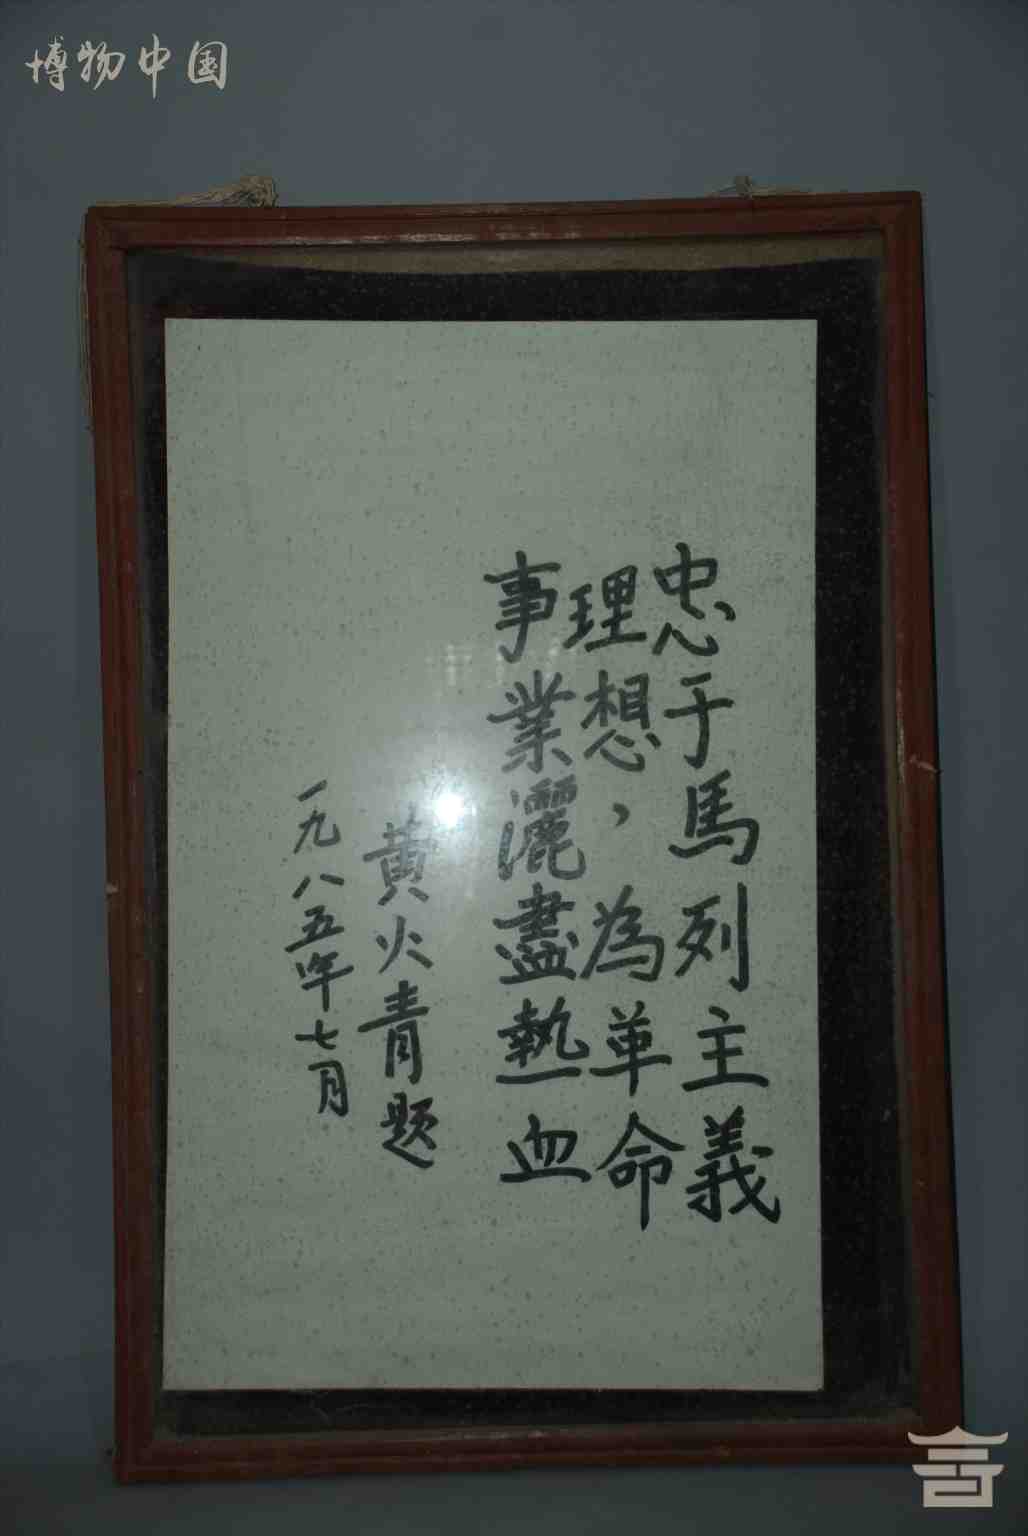 博物中国
忠于馬列主義
理想，為革命
事業灑盡熱血
黄火青题
一九八五年七月